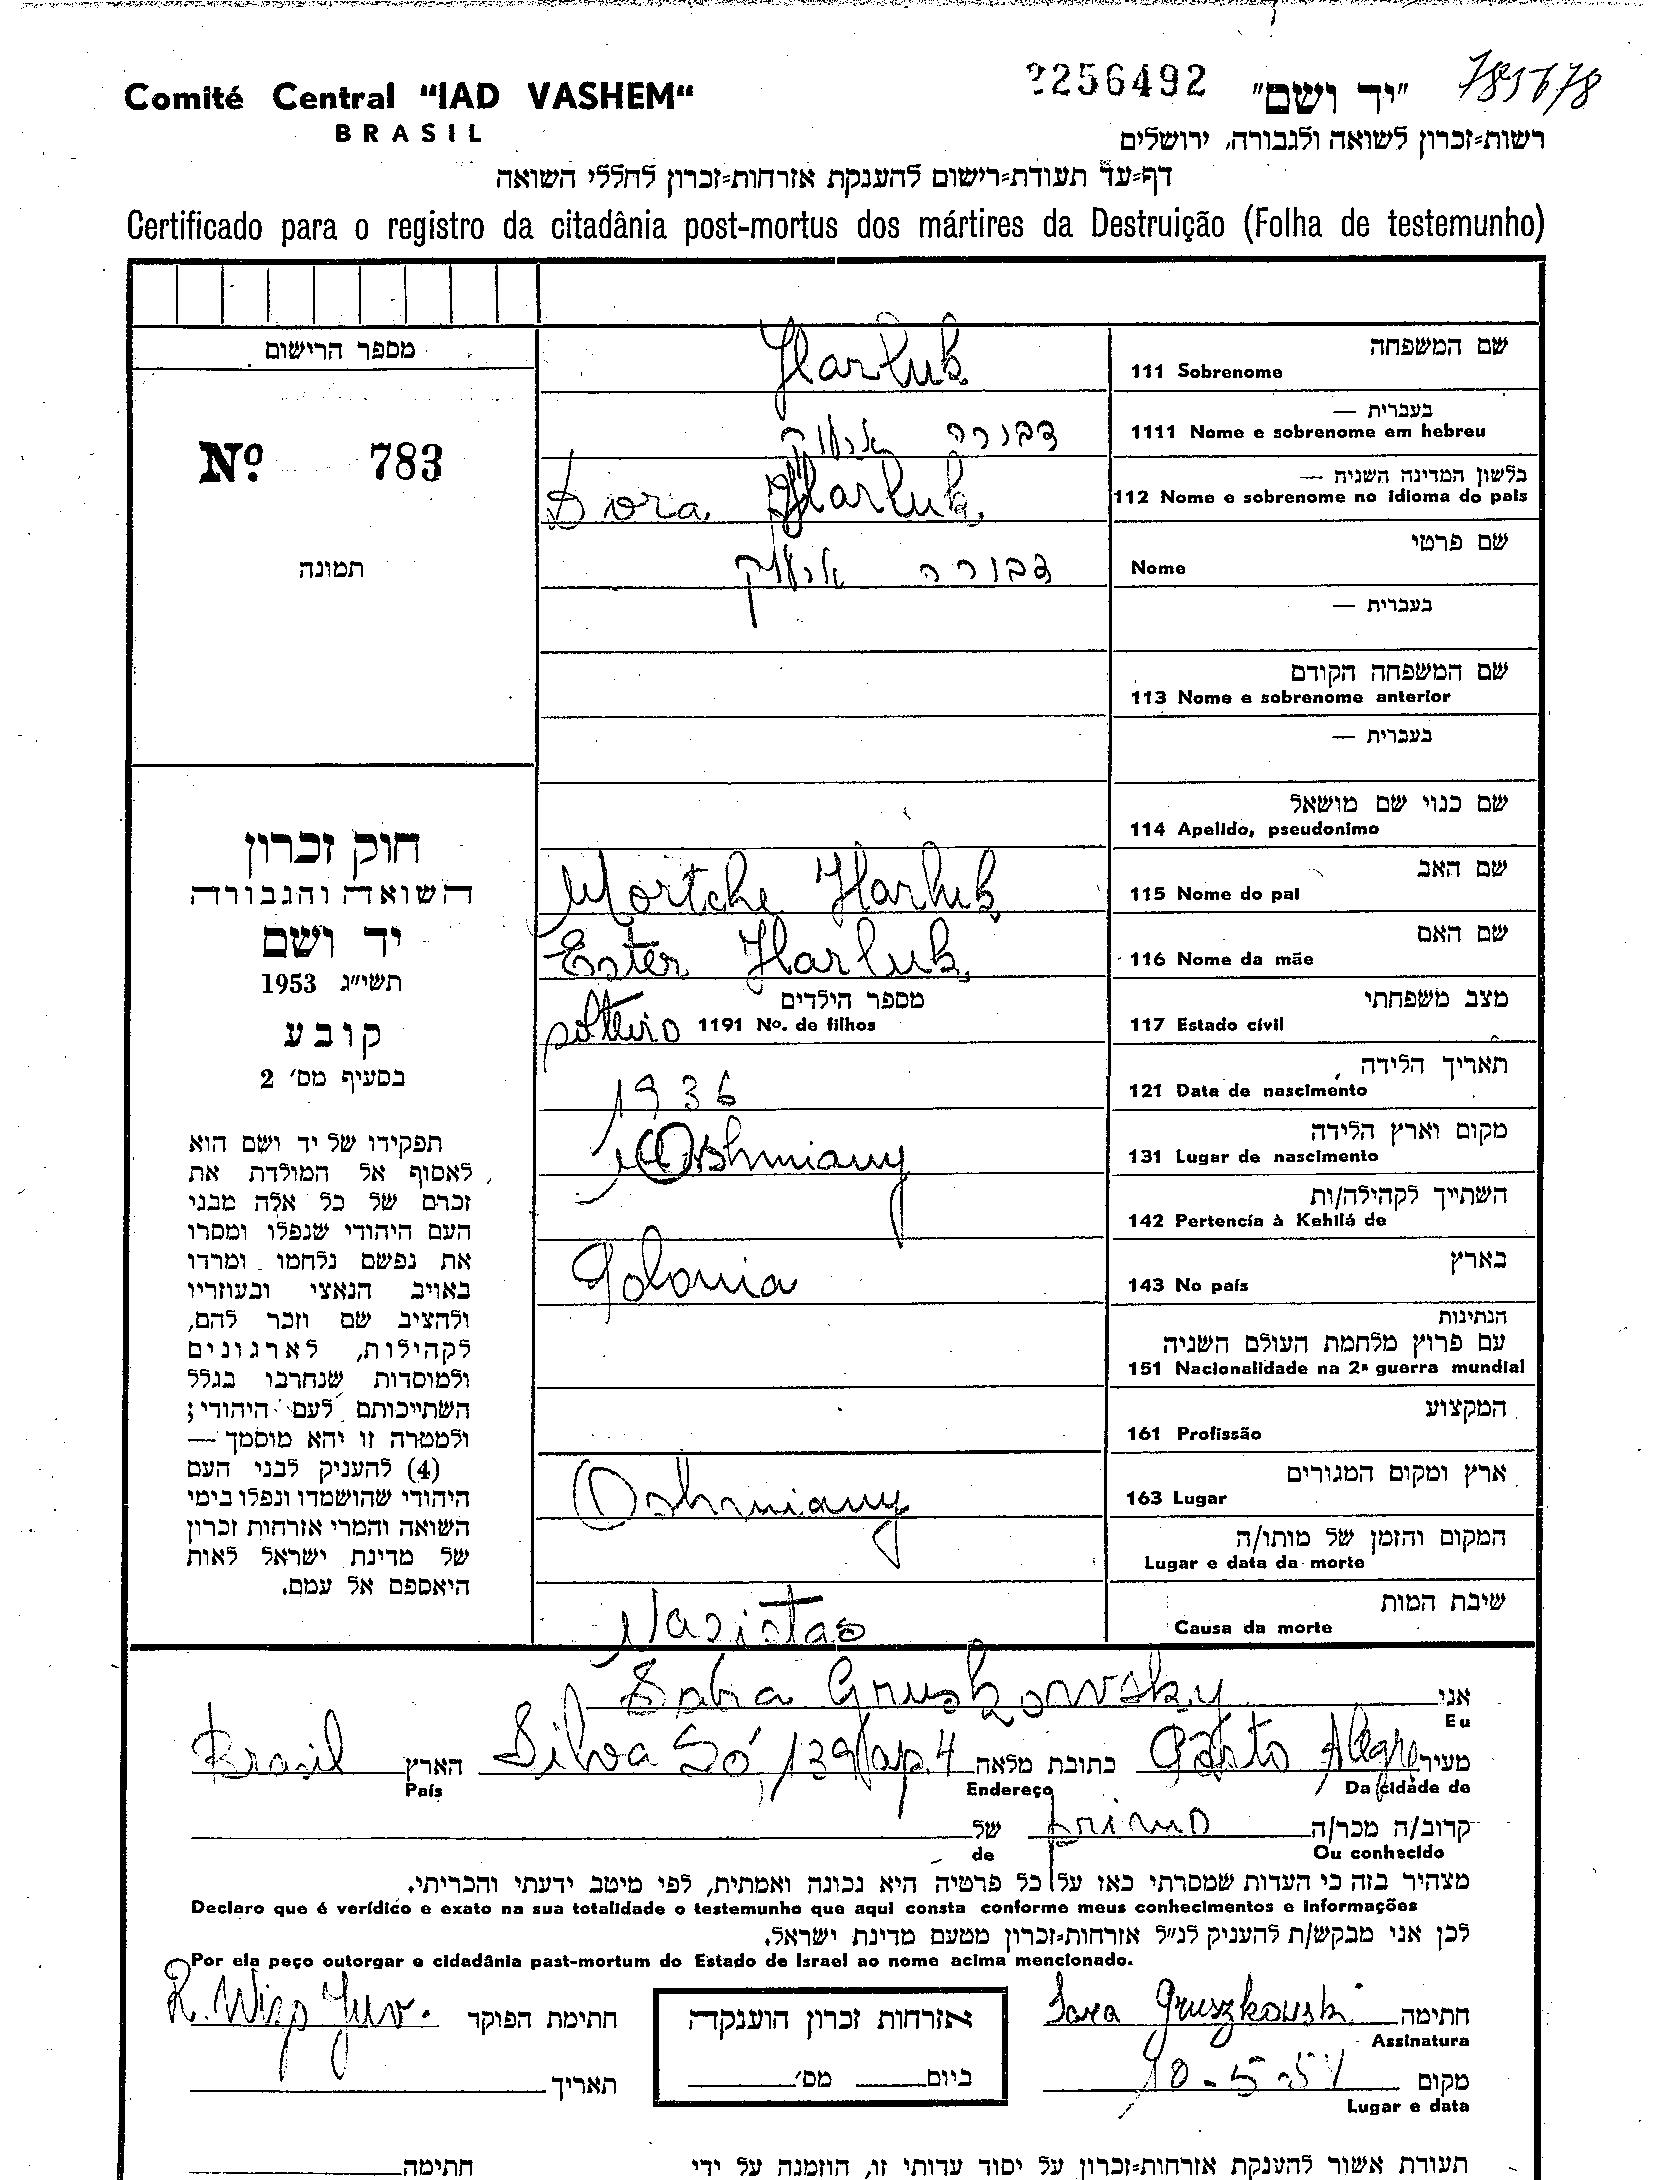 Comité Central "IAD VASHEM"
BRASIL
2256492
"יד ושם"
רשות-זכרון לשואה ולגבורה, ירושלים
דף-עד תעודת-רישום להענקת אזרחות-זכרון לחללי השואה
Certificado para o registro da citadânia post-mortus dos mártires da Destruição (Folha de testemunho)
מספר הרישום
Nº 783
תמונה
חוק זכרון
השואה והגבורה
יד ושם
תשי״ג 1953
קובע
בסעיף מס׳ 2
תפקידו של יד ושם הוא
לאסוף אל המולדת את
זכרם של כל אלה מבני
העם היהודי שנפלו ומסרו
את נפשם נלחמו ומרדו
באויב הנאצי ובעוזריו
ולהציב שם וזכר להם,
לקהילות, לארגונים
ולמוסדות שנחרבו בגלל
השתייכותם לעם היהודי;
ולמטרה זו יהא מוסמך —
(4) להעניק לבני העם
היהודי שהושמדו ונפלו בימי
השואה והמרי אזרחות זכרון
של מדינת ישראל לאות
היאספם אל עמם.
שם המשפחה
111 Sobrenome
Harluk
בעברית —
1111 Nome e sobrenome em hebreu
דבורה
בלשון המדינה השניה —
112 Nome e sobrenome no idioma do país
Dora Harluk
שם פרטי
Nome
דבורה
בעברית —
שם המשפחה הקודם
113 Nome e sobrenome anterior
בעברית —
שם כנוי שם מושאל
114 Apelido, pseudonimo
שם האב
115 Nome do pai
Mortche Harluk
שם האם
116 Nome da mãe
Ester Harluk
מצב משפחתי
117 Estado civil
solteiro
מספר הילדים
1191 Nº. de filhos
תאריך הלידה
121 Data de nascimento
1936
מקום וארץ הלידה
131 Lugar de nascimento
Oshmiany
השתייך לקהילה/ות
142 Pertencia à Kehilá de
בארץ
143 No país
Polonia
הנתינות
עם פרוץ מלחמת העולם השניה
151 Nacionalidade na 2ª guerra mundial
המקצוע
161 Profissão
ארץ ומקום המגורים
163 Lugar
Oshmiany
המקום והזמן של מותו/ה
Lugar e data da morte
שיבת המות
Causa da morte
Nazistas
אני
Eu
Saba Gruskovsky
מעיר
Da cidade de
Porto Alegre
כתובת מלאה
Endereço
Silva Só, 139/ap. 4
הארץ
País
Brasil
קרוב/ה מכר/ה
Ou conhecido
primo
של
de
מצהיר בזה כי העדות שמסרתי כאז על כל פרטיה היא נכונה ואמתית, לפי מיטב ידעתי והכריתי.
Declaro que é verídico e exato na sua totalidade o testemunho que aqui consta conforme meus conhecimentos e informações
לכן אני מבקש/ת להעניק לנ״ל אזרחות-זכרון מטעם מדינת ישראל.
Por ela peço outorgar e cidadânia past-mortum do Estado de Israel ao nome acima mencionado.
חתימה
Assinatura
Sara Gruszkowski
אזרחות זכרון הוענקה
ביום ____ מס׳ ____
חתימת הפוקד
מקום
Lugar e data
תאריך
תעודת אשור להענקת אזרחות-זכרון על יסוד עדותי זו, הוזמנה על ידי
חתימה